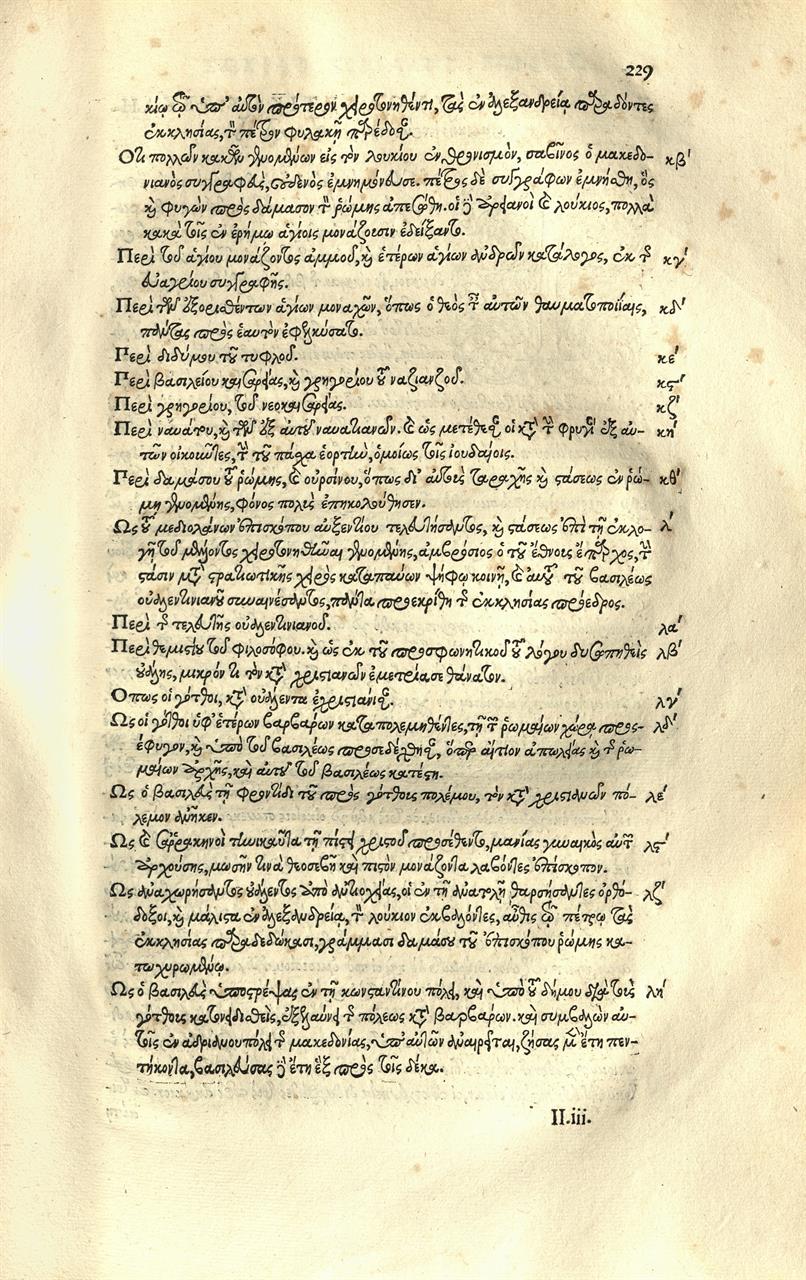 229
κίῳ τῷ ὑπ' αὐτῶν πρότερον χειροτονηθέντι, τὰς ἐν ἀλεξανδρείᾳ παραδόντες
ἐκκλησίας, τὸν πέτρον φυλακῇ παρέδοσαν.
Ὅτι πολλῶν κακῶν γενομένων εἰς τὸν λουκίου ἐνθρονισμὸν, σαβῖνος ὁ μακεδο- κβ'
νιανὸς συγγραφεὺς, οὐδενὸς ἐμνημόνευσε. πέτρος δὲ συγγράφων ἐμνήσθη, ὃς
καὶ φυγὼν πρὸς δάμασον τὸν ῥώμης ἀπεσώθη. οἱ γὰρ ἀρειανοὶ καὶ λούκιος, πολλὰ
κακὰ τοῖς ἐν ἐρήμω ἁγίοις μονάζουσιν ἐδείξαντο.
Περὶ τοῦ ἁγίου μονάζοντος ἀμμοῦ, καὶ ἑτέρων ἁγίων ἀνδρῶν κατάλογος, ἐκ τῆς κγ'
εὐαγρίου συγγραφῆς.
Περὶ τῶν ἐξορισθέντων ἁγίων μοναχῶν, ὅπως ὁ θεὸς ταῖς αὐτῶν θαυματοποιίαις, κδ'
πάντας πρὸς ἑαυτὸν ἐφειλκύσατο.
Περὶ διδύμου τοῦ τυφλοῦ. κε'
Περὶ βασιλείου καισαρείας, καὶ γρηγορίου τοῦ ναζιανζοῦ. κς'
Περὶ γρηγορίου, τοῦ νεοκαισαρείας. κζ'
Περὶ ναυάτου, καὶ τῶν ἐξ αὐτοῦ ναυατιανῶν. καὶ ὡς μετέθεσαν οἱ κατὰ τὴν φρυγίαν ἐξ αὐ- κη'
τῶν οἰκοῦντες, τὴν τοῦ πάσχα ἑορτὴν, ὁμοίως τοῖς ἰουδαίοις.
Περὶ δαμάσου τοῦ ῥώμης, καὶ οὐρσίνου, ὅπως δι' αὐτοὺς ταραχῆς καὶ στάσεως ἐν ῥώ- κθ'
μῃ γενομένης, φόνος πολὺς ἐπηκολούθησεν.
Ὡς τοῦ μεδιολάνων ἐπισκόπου αὐξεντίου τελευτήσαντος, καὶ στάσεως ἐπὶ τῇ ἐκλο- λ'
γῇ τοῦ μέλλοντος χειροτονηθῆναι γενομένης, ἀμβρόσιος ὁ τοῦ ἔθνους ἔπαρχος, τὴν
στάσιν μετὰ στρατιωτικῆς χειρὸς καταπαύων ψήφῳ κοινῇ, καὶ αὐτοῦ τοῦ βασιλέως
οὐαλεντινιανοῦ συναινέσαντος, πάντα προεκρίθη τῆς ἐκκλησίας πρόεδρος.
Περὶ τῆς τελευτῆς οὐαλεντινιανοῦ. λα'
Περὶ θεμιστίου τοῦ φιλοσόφου. καὶ ὡς ἐκ τοῦ προσφωνητικοῦ τοῦ λόγου δυσωπηθεὶς λβ'
οὐάλης, μικρόν τι τὸν κατὰ χριστιανῶν ἐμετρίασε θάνατον.
Ὅπως οἱ γότθοι, κατὰ οὐάλεντα ἐχριστιάνισαν. λγ'
Ὡς οἱ γότθοι ὑφ' ἑτέρων βαρβάρων καταπολεμηθέντες, τῇ τῶν ῥωμαίων χώρᾳ προς- λδ'
έφυγον, καὶ ὑπὸ τοῦ βασιλέως προσεδέχθησαν, ὅπερ αἴτιον ἀπωλείας καὶ τῆς ῥω-
μαίων ἀρχῆς, καὶ αὐτοῦ τοῦ βασιλέως κατέστη.
Ὡς ὁ βασιλεὺς τῇ φροντίδι τοῦ πρὸς γότθους πολέμου, τὸν κατὰ χριστιανῶν πό- λε'
λεμον ἀνῆκεν.
Ὡς καὶ σαρακηνοὶ τηνικαῦτα τῇ πίστει χριστοῦ προσέθεντο, μανίας γυναικὸς αὐτῶν λς'
ἀρχούσης, μωσῆν τινὰ θεοσεβῆ καὶ πιστὸν μονάζοντα λαβόντες ἐπίσκοπον.
Ὡς ἀναχωρήσαντος οὐάλεντος ἀπὸ ἀντιοχείας, οἱ ἐν τῇ ἀνατολῇ θαρσήσαντες ὀρθό- λζ'
δοξοι, καὶ μάλιστα ἐν ἀλεξανδρείᾳ, τὸν λούκιον ἐκβαλόντες, αὖθις τῷ πέτρῳ τὰς
ἐκκλησίας παραδεδώκασι, γράμμασι δαμάσου τοῦ ἐπισκόπου ῥώμης κα-
τωχυρωμένῳ.
Ὡς ὁ βασιλεὺς ὑποστρέψας ἐν τῇ κωνσταντίνου πόλει, καὶ ὑπὸ τοῦ δήμου διὰ τοὺς λη'
γότθους κατονειδισθεὶς, ἐξελαύνει τῆς πόλεως κατὰ βαρβάρων. καὶ συμβαλὼν αὐ-
τοῖς ἐν ἀδριανουπόλει τῆς μακεδονίας, ὑπ' αὐτῶν ἀναιρεῖται, ζήσας μὲν ἔτη πεν-
τήκοντα, βασιλεύσας δὲ ἔτη ἓξ πρὸς τοῖς δέκα.
II.iii.